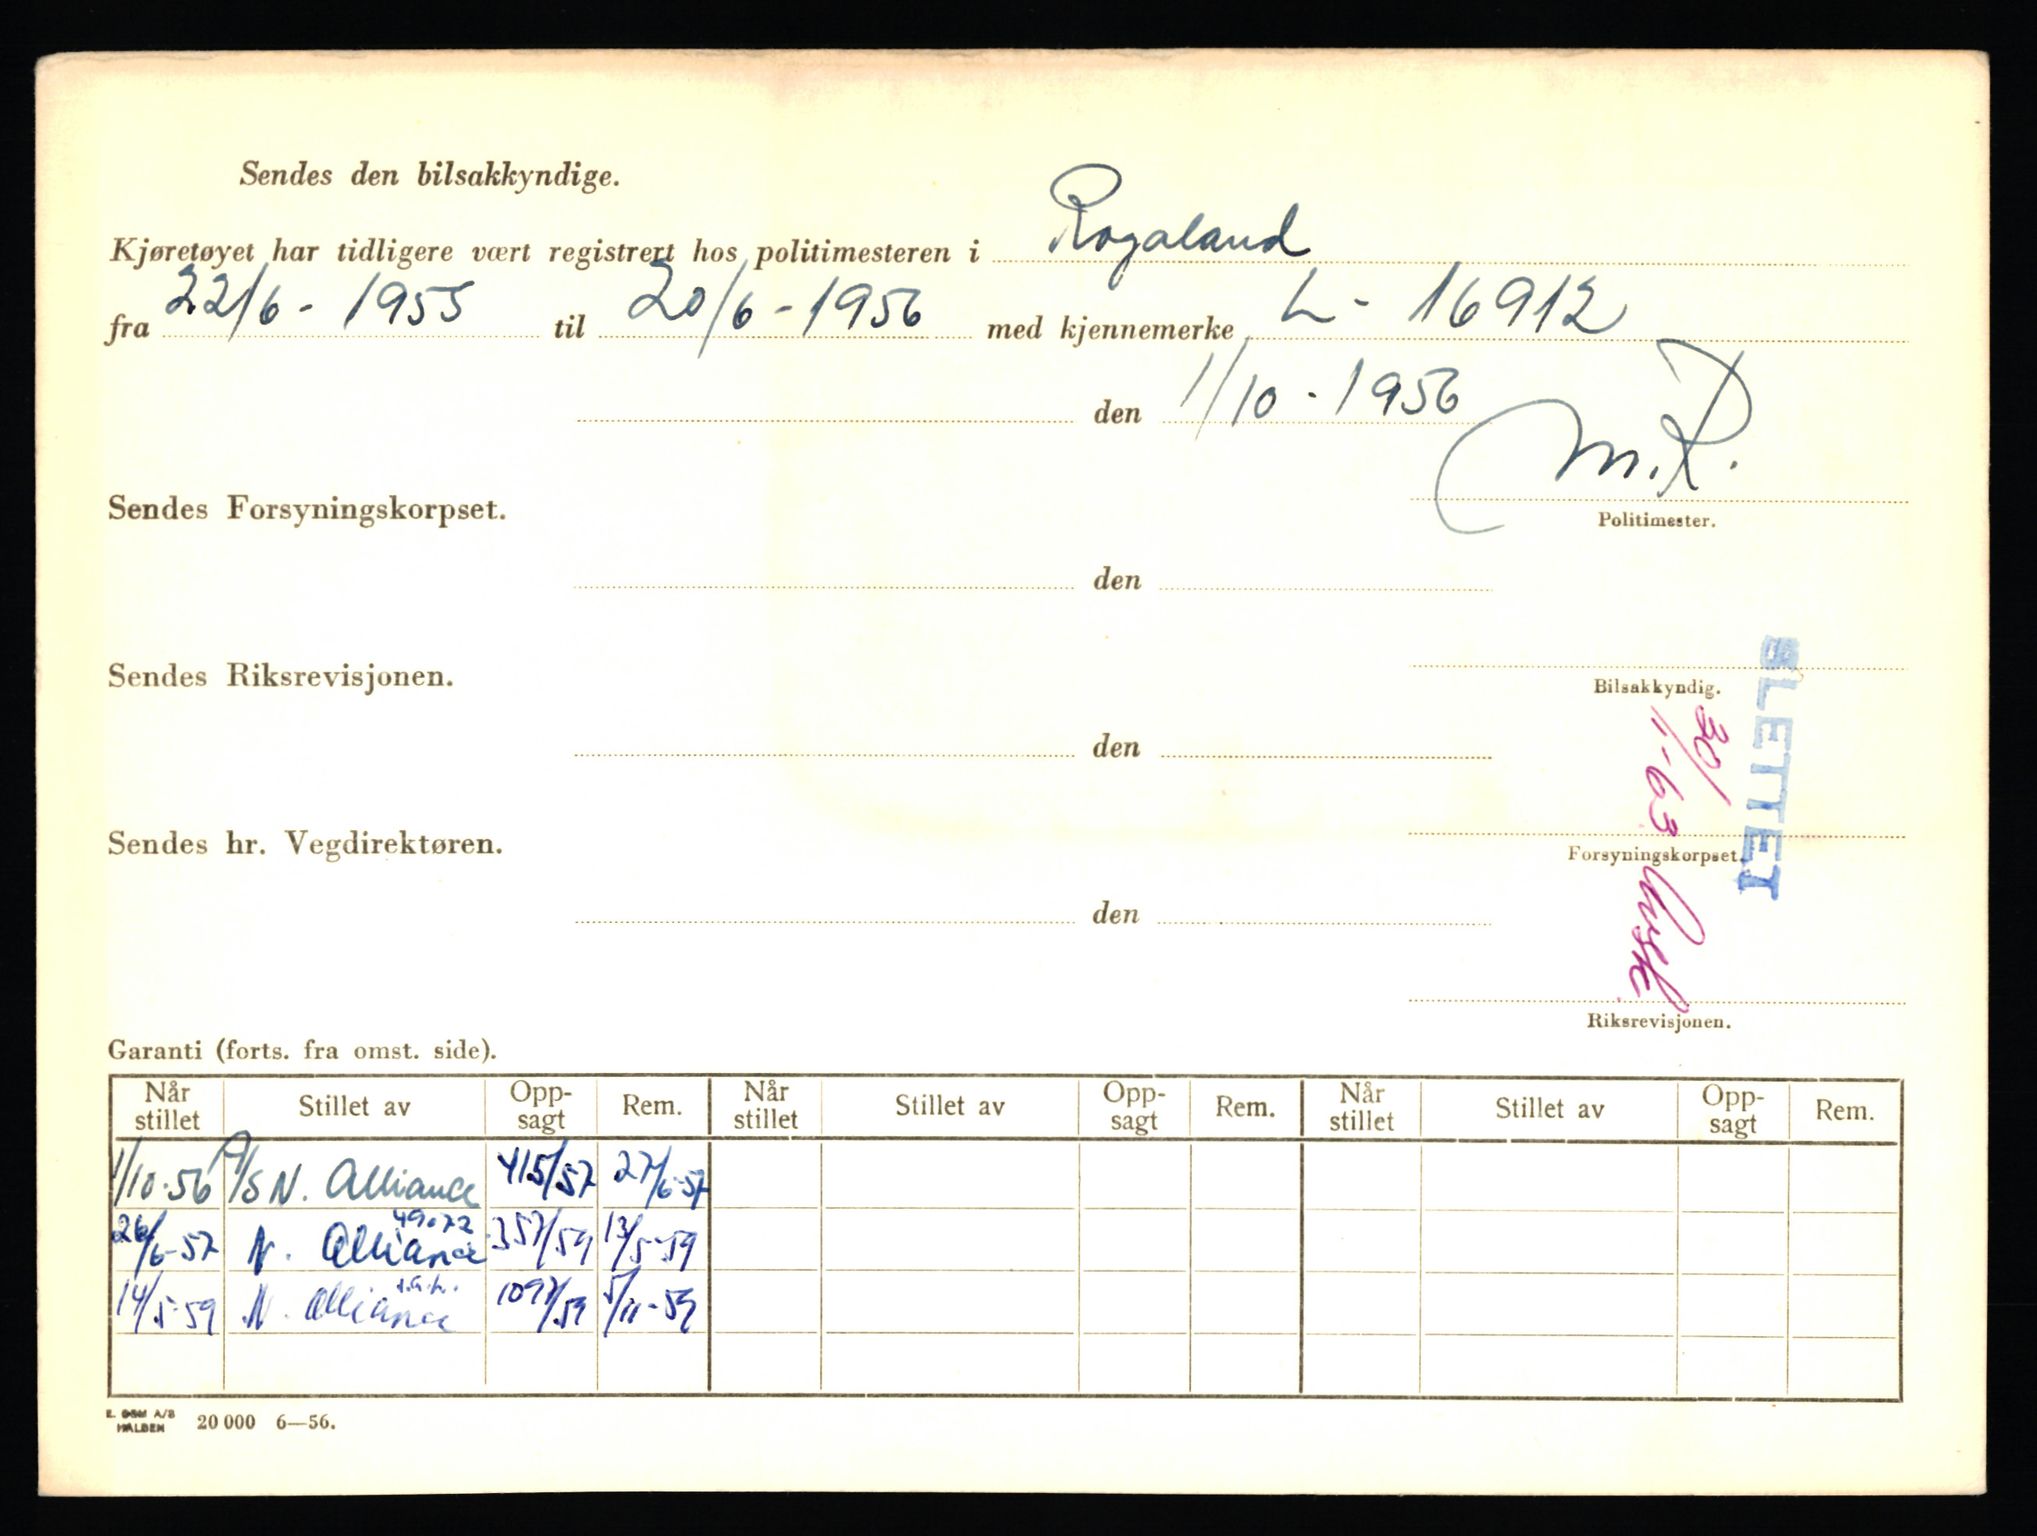 Sendes den bilsakkyndige.
Kjøretøyet har tidligere vært registrert hos politimesteren i Rogaland
fra 22/6 - 1955 til 20/6 - 1956 med kjennemerke L - 16912
den 1/10 - 1956
M.R.
Sendes Forsyningskorpset.
Politimester.
den
Sendes Riksrevisjonen.
Bilsakkyndig.
SLETTET
30/11-63
den
Sendes hr. Vegdirektøren.
Forsyningskorpset.
den
Riksrevisjonen.
Garanti (forts. fra omst. side).
Når stillet Stillet av Opp-sagt Rem. Når stillet Stillet av Opp-sagt Rem. Når stillet Stillet av Opp-sagt Rem.
1/10-56 A/S N. Alliance 415/57 27/6-57
26/6-57 N. Alliance 49072 357/59 13/5-59
14/5-59 N. Alliance 1097/59 5/11-59
HALDEN 20 000 6—56.